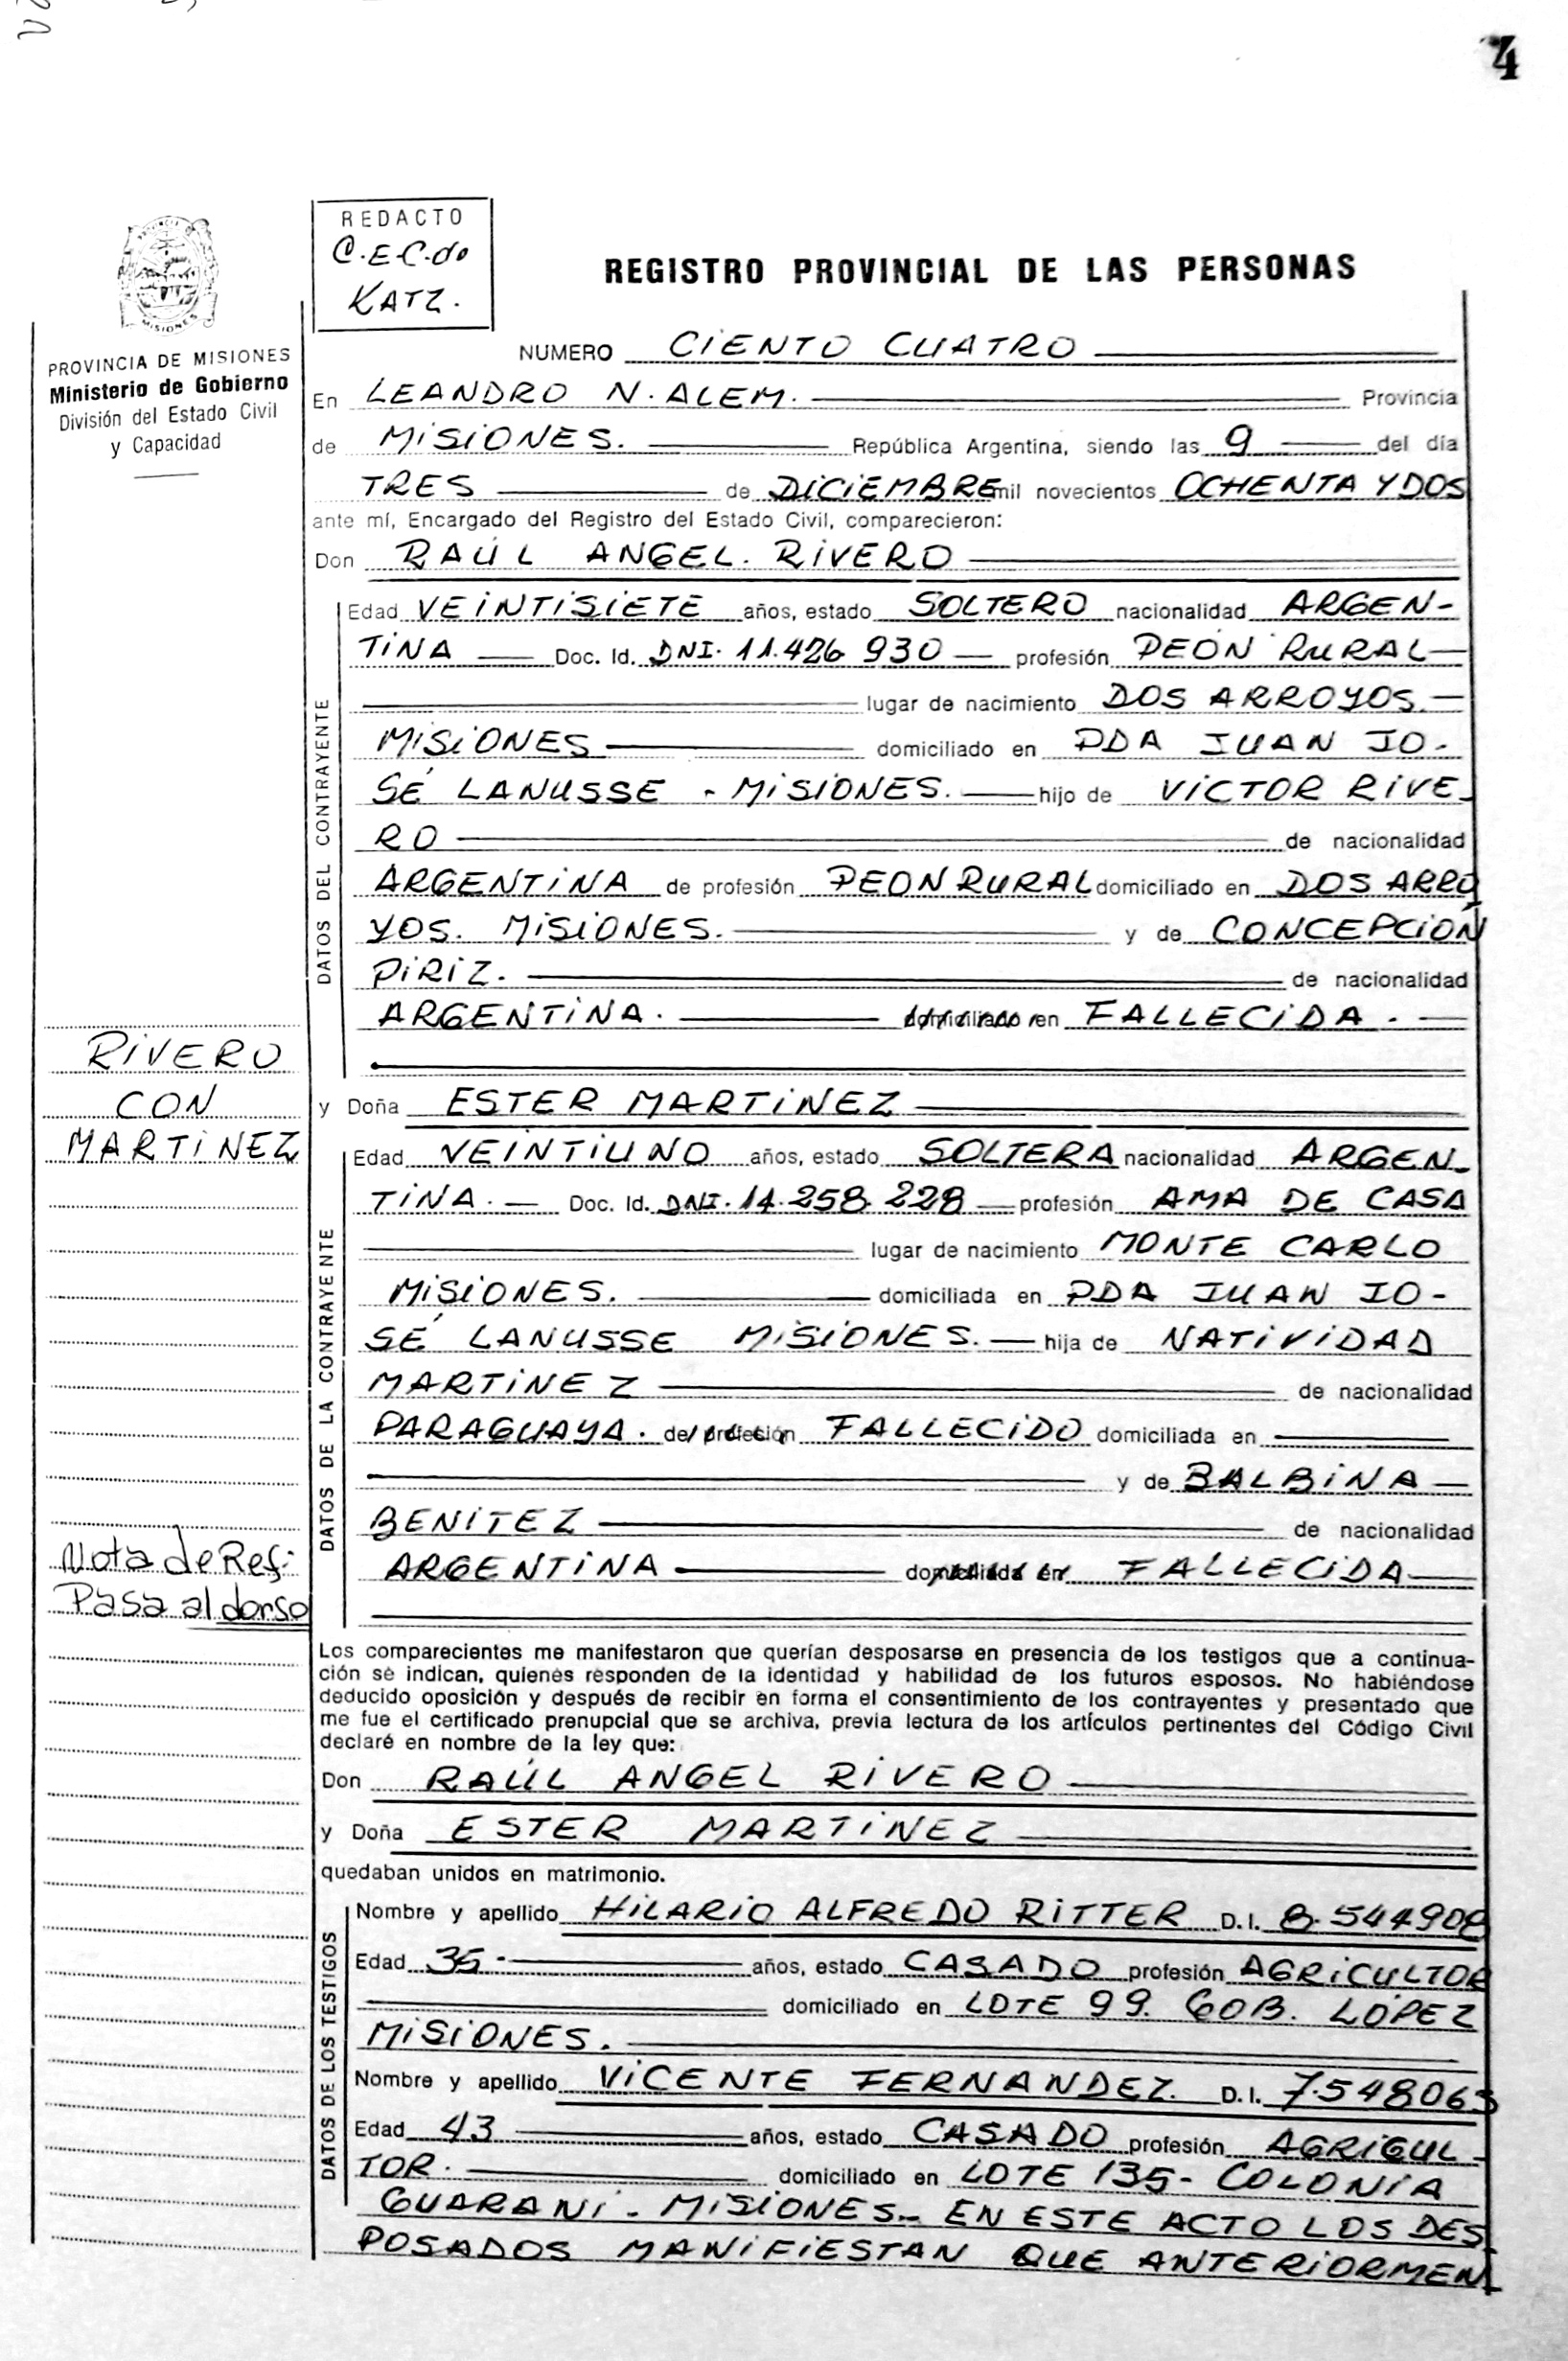 4
REDACTO
C.E.C.do
KATZ.
REGISTRO PROVINCIAL DE LAS PERSONAS
MISIONES
PROVINCIA DE MISIONES
Ministerio de Gobierno
División del Estado Civil
y Capacidad
NUMERO CIENTO CUATRO
En LEANDRO N. ALEM. Provincia
de MISIONES. República Argentina, siendo las 9 del día
TRES de DICIEMBRE mil novecientos OCHENTA Y DOS
ante mí, Encargado del Registro del Estado Civil, comparecieron:
Don RAÚL ANGEL. RIVERO
DATOS DEL CONTRAYENTE
Edad VEINTISIETE años, estado SOLTERO nacionalidad ARGEN-
TINA Doc. Id. DNI. 11.426 930 profesión PEON RURAL
lugar de nacimiento DOS ARROYOS.
MISIONES domiciliado en PDA JUAN JO-
SÉ LANUSSE - MISIONES. hijo de VICTOR RIVE-
RO de nacionalidad
ARGENTINA de profesión PEON RURAL domiciliado en DOS ARRO
YOS. MISIONES. y de CONCEPCIÓN
PIRIZ. de nacionalidad
ARGENTINA. domiciliado en FALLECIDA.
RIVERO
CON
MARTINEZ
y Doña ESTER MARTINEZ
DATOS DE LA CONTRAYENTE
Edad VEINTIUNO años, estado SOLTERA nacionalidad ARGEN-
TINA. Doc. Id. DNI. 14.258 228 profesión AMA DE CASA
lugar de nacimiento MONTE CARLO
MISIONES. domiciliada en PDA JUAN JO-
SÉ LANUSSE MISIONES. hija de NATIVIDAD
MARTINEZ de nacionalidad
PARAGUAYA. de profesión FALLECIDO domiciliada en
y de BALBINA
BENITEZ de nacionalidad
ARGENTINA domiciliada en FALLECIDA
Nota de Ref:
Pasa al dorso
Los comparecientes me manifestaron que querían desposarse en presencia de los testigos que a continua-
ción se indican, quienes responden de la identidad y habilidad de los futuros esposos. No habiéndose
deducido oposición y después de recibir en forma el consentimiento de los contrayentes y presentado que
me fue el certificado prenupcial que se archiva, previa lectura de los artículos pertinentes del Código Civil
declaré en nombre de la ley que:
Don RAÚL ANGEL RIVERO
y Doña ESTER MARTINEZ
quedaban unidos en matrimonio.
DATOS DE LOS TESTIGOS
Nombre y apellido HILARIO ALFREDO RITTER D.I. 8.544908
Edad 35- años, estado CASADO profesión AGRICULTOR
domiciliado en LOTE 99. GOB. LOPEZ
MISIONES.
Nombre y apellido VICENTE FERNANDEZ. D.I. 7.548063
Edad 43 años, estado CASADO profesión AGRICUL-
TOR. domiciliado en LOTE 135- COLONIA
GUARANI - MISIONES.- EN ESTE ACTO LOS DES
POSADOS MANIFIESTAN QUE ANTERIORMEN